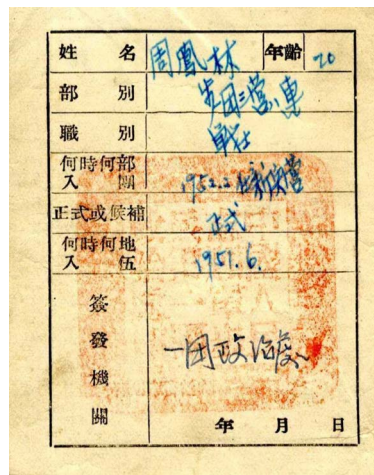 姓名 周鳳林 年齡 20
部別 三营
職別 战士
何時何部入團 1952.2
正式或候補 正式
何時何地入伍 1951.6.
簽發機關 一团政治处
年 月 日